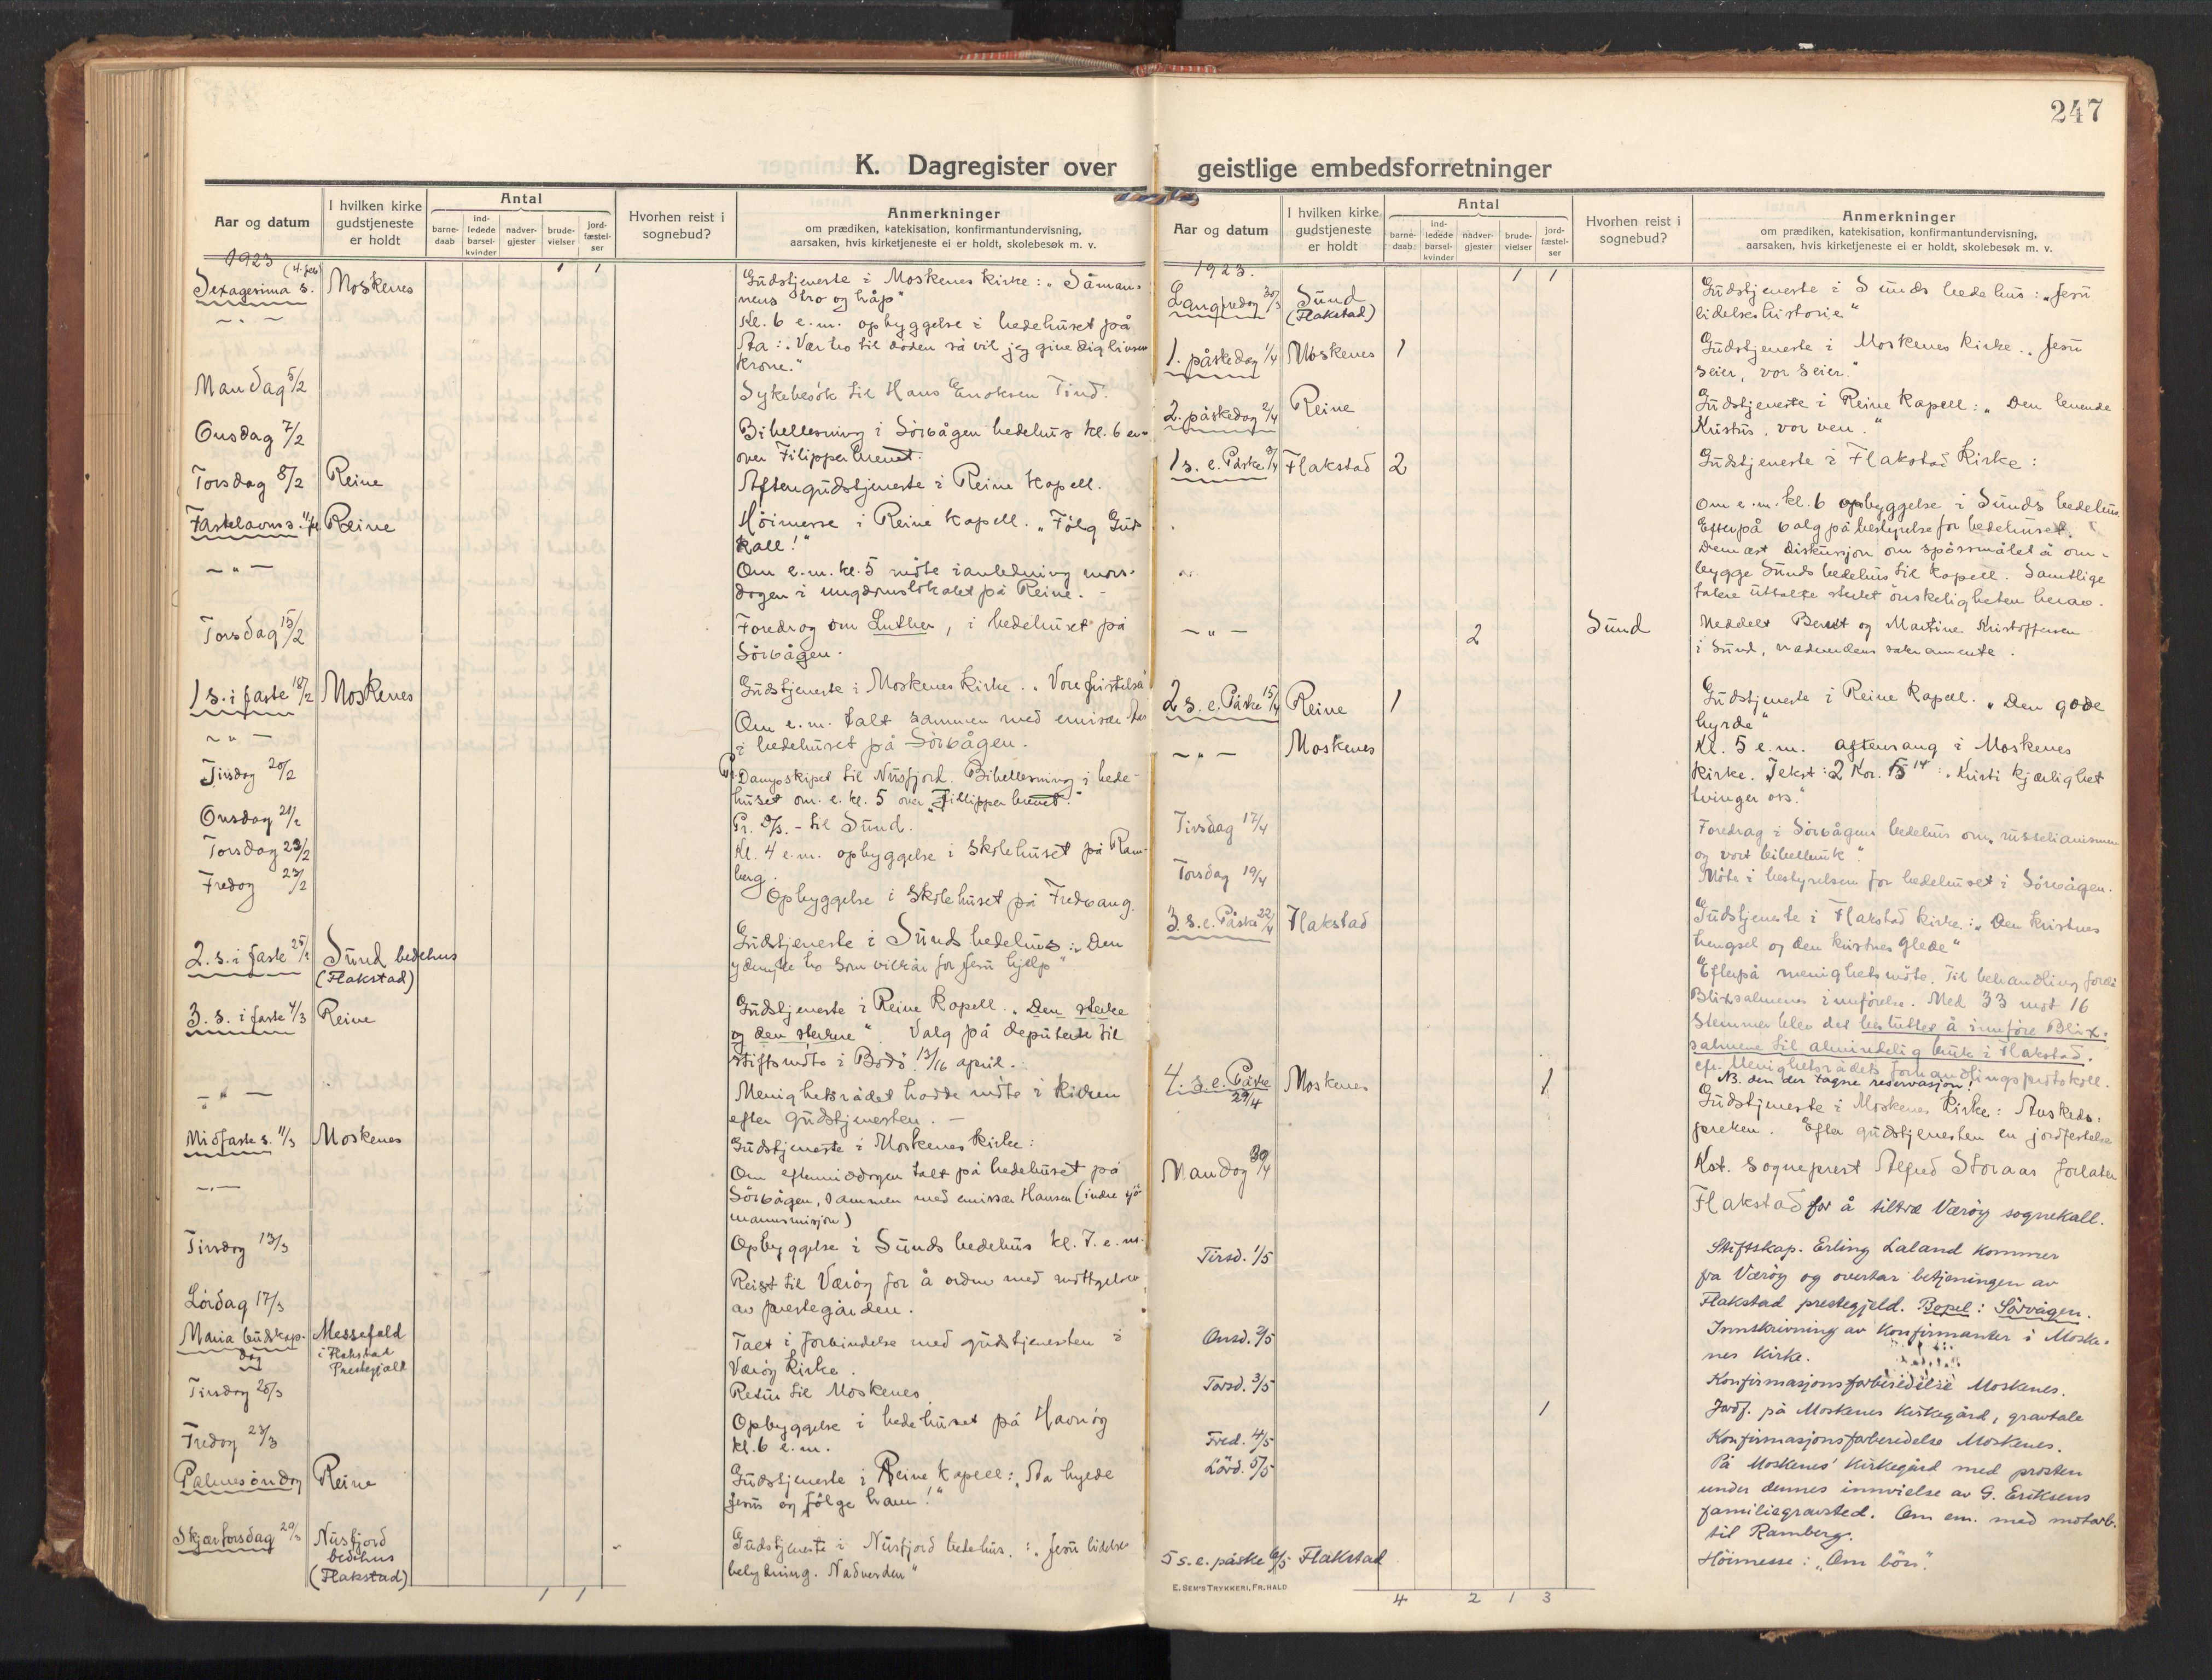 247
K. Dagregister over geistlige embedsforretninger
Aar og datum
I hvilken kirke gudstjeneste er holdt
Antal
barne-daab
ind-ledede barsel-kvinder
nadver-gjester
brude-vielser
jord-fæstel-ser
Hvorhen reist i sognebud?
Anmerkninger
om prædiken, katekisation, konfirmantundervisning,
aarsaken, hvis kirketjeneste ei er holdt, skolebesøk m. v.
1923 (4. feb) 1 1
Sexagesima s. Moskenes Gudstjeneste i Moskenes kirke: „Såman-
nens tro og håp"
— " — Kl. 6 e.m. opbyggelse i bedehuset på
Åa: „Vær tro til døden så vil jeg give dig livsens
krone."
Mandag 5/2 Sykebesök til Hans Enoksen Tind.
Onsdag 7/2 Bibellesning i Sörvågen bedehus kl. 6 em
over Filipperbrevet.
Torsdag 8/2 Reine Aftengudstjeneste i Reine Kapell.
Fastelavns s. 11/2 Reine Höimesse i Reine kapell. „Fölg Guds
kall!"
— " — Om e.m. kl. 5 möte i anledning mors-
dagen i ungdomslokalet på Reine.
Torsdag 15/2 Foredrag om Luther, i bedehuset på
Sörvågen.
1 s. i faste 18/2 Moskenes Gudstjeneste i Moskenes Kirke. „Vore fristelser
— " — Om e.m. talt sammen med emissær
i bedehuset på Sörvågen.
Tirsdag 20/2 Pr. Dampskipet til Nusfjord. Bibellesning i bede-
huset om. e. kl. 5 over „Fillipper brevet."
Onsdag 21/2 Pr. D/S. - til Sund.
Torsdag 22/2 Kl. 4 e.m. opbyggelse i skolehuset på Ram-
berg.
Fredag 23/2 Opbyggelse i skolehuset på Fredvang.
2. s. i faste 25/2 Sund bedehus Gudstjeneste i Sunds bedehus: „Den
(Flakstad) ydmyke tro som vilkår for Jesu hjelp"
3. s. i faste 4/3 Reine Gudstjeneste i Reine Kapell. „Den sterke
og den sterkere". Valg på deputerte til
stiftsmöte i Bodö 13/16 april.
— " — Menighetsrådet hadde möte i kirken
efter gudstjenesten. —
Midfaste s. 11/3 Moskenes Gudstjeneste i Moskenes kirke:
— " — Om eftermiddagen talt på bedehuset på
Sörvågen, sammen med emissær Hansen (indre sjö-
mannsmisjon)
Tirsdag 13/3 Opbyggelse i Sunds bedehus kl. 7. e.m.
Lördag 17/3 Reist til Væröy for å ordne med mottgelse
av prestegården.
Maria budskap- Messefald Talt i forbindelse med gudstjenesten i
dag i Flakstad Væröy kirke.
Prestegjeld
Tirsdag 20/3 Retur til Moskenes
Fredag 23/3 Opbyggelse i bedehuset på Havnöy
kl. 6 e.m.
Palmesöndag Reine Gudstjeneste i Reine kapell: „Aa hylde
Jesus og fölge ham!"
Skjærtorsdag 29/3 Nusfjord Gudstjeneste i Nusfjord bedehus. : „Jesu lidelses
bedehus betydning. Nadverden"
(Flakstad)
1 1
Aar og datum
I hvilken kirke gudstjeneste er holdt
Antal
barne-daab
ind-ledede barsel-kvinder
nadver-gjester
brude-vielser
jord-fæstel-ser
Hvorhen reist i sognebud?
Anmerkninger
om prædiken, katekisation, konfirmantundervisning,
aarsaken, hvis kirketjeneste ei er holdt, skolebesøk m. v.
1923. 1 1
Langfredag 30/3 Sund Gudstjeneste i Sunds bedehus: „Jesu
(Flakstad) lidelseshistorie"
1. påskedag 1/4 Moskenes 1 Gudstjeneste i Moskenes Kirke. „Jesu
seier, vor seier."
2. påskedag 2/4 Reine Gudstjeneste i Reine Kapell: „Den levende
Kristus, vor ven."
1 s. e. Påske 8/4 Flakstad 2 Gudstjeneste i Flakstad Kirke:
Om e.m. kl. 6 opbyggelse i Sunds bedehus.
Efterpå valg på bestyrelse for bedehuset.
Dernæst diskusjon om spörsmålet å om-
bygge Sunds bedehus til kapell. Samtlige
talere uttalte sterkt önskeligheten herav.
— " — 2 Sund Meddelt Berent og Martine Kristoffersen
i Sund, nadverdens sakramente.
2 s. e. Påske 15/4 Reine 1 Gudstjeneste i Reine Kapell. „Den gode
hyrde"
— " — Moskenes Kl. 5 e.m. aftensang i Moskenes
kirke. Tekst: 2 Kor. 5 14: „Kristi kjærlighet
tvinger oss."
Tirsdag 17/4 Foredrag i Sörvågens bedehus om „russelianismen
og vort bibelbruk".
Torsdag 19/4 Möte i bestyrelsen for bedehuset i Sörvågen.
3. s. e. Påske 22/4 Flakstad Gudstjeneste i Flakstad kirke: „Den kristnes
trengsel og den kristnes glede"
Efterpå menighetsmöte. Til behandling forelå
Blixsalmenes innförelse. Med 33 mot 16
stemmer blev det besluttet å innföre Blix-
salmene til almindelig bruk i Flakstad.
cfr. Menighetsrådets forhandlingsprotokoll.
NB. den der tagne reservasjon!
4. s. e. Påske 29/4 Moskenes 1 Gudstjeneste i Moskenes Kirke: Avskeds-
preken. Efter gudstjenesten en jordfestelse
Mandag 30/4 Kst. Sogneprest Alfred Storaas forlater
Flakstad for å tiltræ Væröy sognekall.
Tirsd. 1/5 Stiftskap. Erling Laland kommer
fra Væröy og overtar betjeningen av
Flakstad prestegjeld. Bopel: Sörvågen.
Onsd. 2/5 Innskrivning av konfirmanter i Moske-
nes kirke.
Torsd. 3/5 Konfirmasjonsforberedelse Moskenes.
1 Jordf. på Moskenes kirkegård, gravtale
Fred. 4/5 Konfirmasjonsforberedelse Moskenes.
Lörd. 5/5 På Moskenes' kirkegård med prosten
under dennes innvielse av G. Eriksens
familiegravsted. Om em. med motorb.
til Ramberg.
5 s. e. påske 6/5 Flakstad Höimesse: „Om bön".
E. SEM'S TRYKKERI, FR. HALD
4 2 1 3